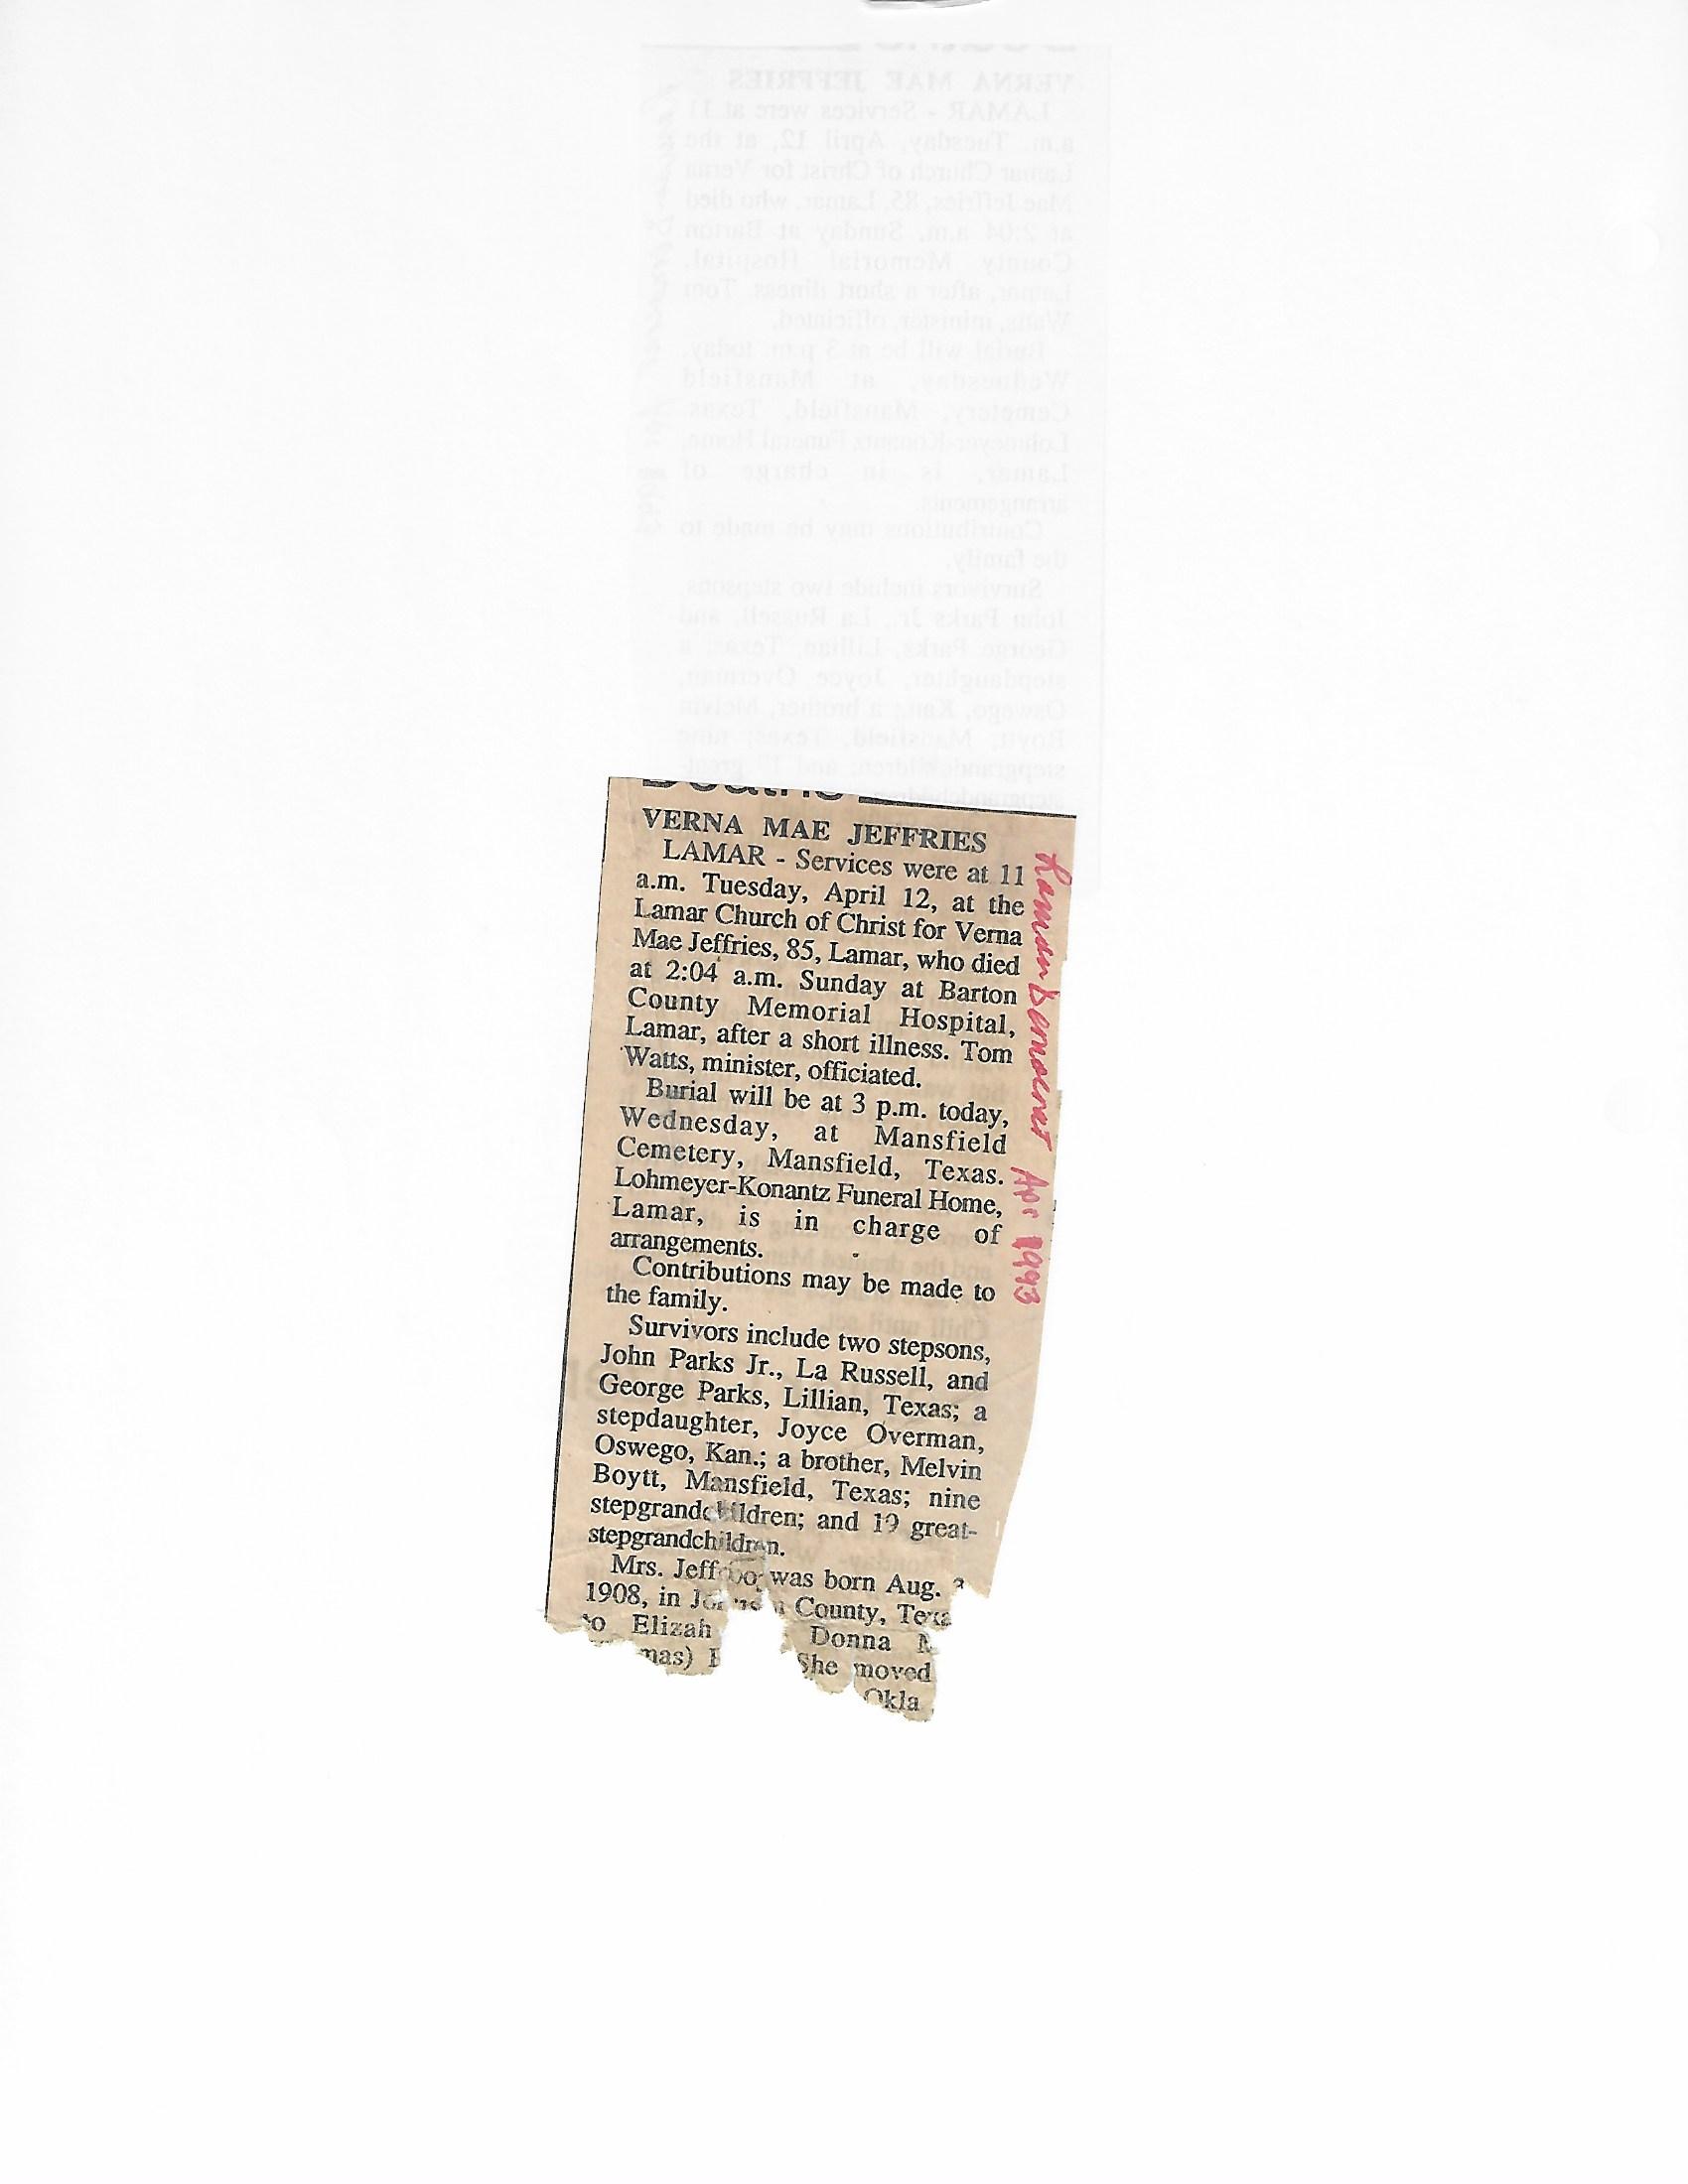 Deaths
VERNA MAE JEFFRIES
LAMAR - Services were at 11
a.m. Tuesday, April 12, at the
Lamar Church of Christ for Verna
Mae Jeffries, 85, Lamar, who died
at 2:04 a.m. Sunday at Barton
County Memorial Hospital,
Lamar, after a short illness. Tom
Watts, minister, officiated.
Burial will be at 3 p.m. today,
Wednesday, at Mansfield
Cemetery, Mansfield, Texas.
Lohmeyer-Konantz Funeral Home,
Lamar, is in charge of
arrangements.
Contributions may be made to
the family.
Survivors include two stepsons,
John Parks Jr., La Russell, and
George Parks, Lillian, Texas; a
stepdaughter, Joyce Overman,
Oswego, Kan.; a brother, Melvin
Boytt, Mansfield, Texas; nine
stepgrandchildren; and 19 great-
stepgrandchildren.
Mrs. was born Aug.
1908, in County,
to Donna
She moved
Okla
Lamar Democrat Apr 1993